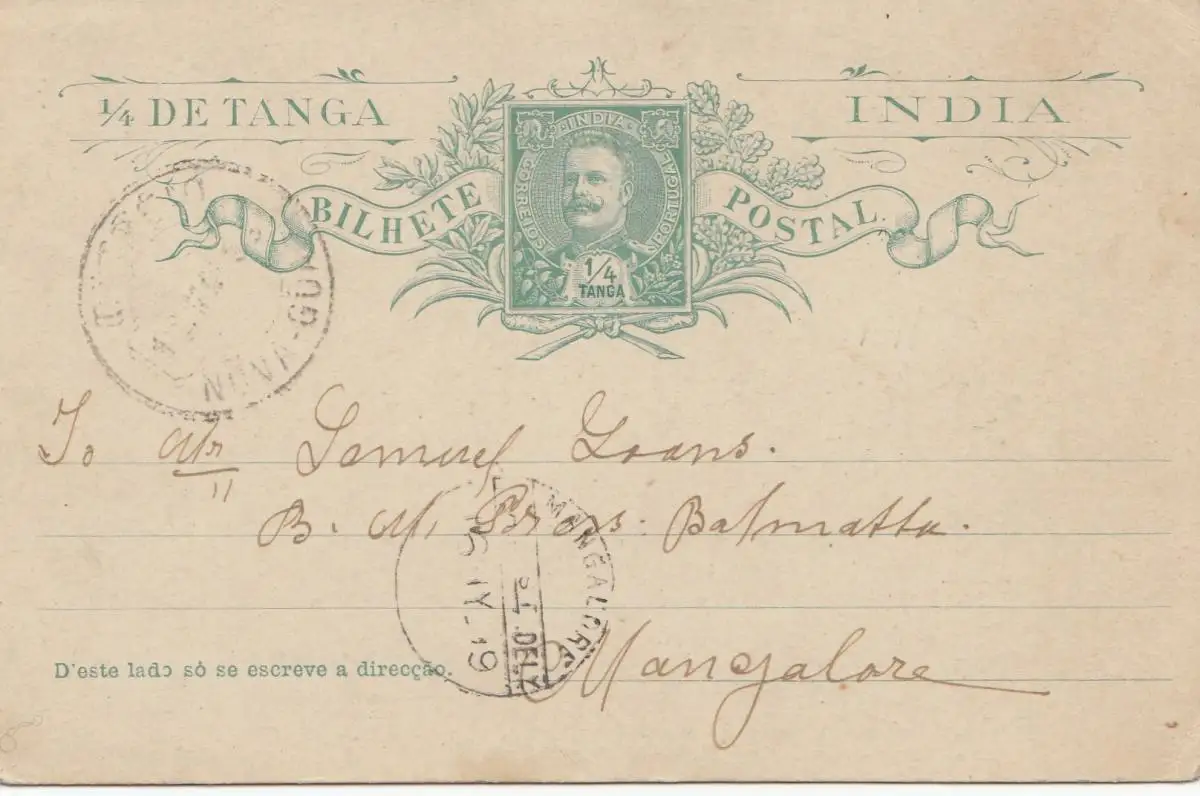 ¼ DE TANGA
INDIA
· INDIA ·
CORREIOS
PORTUGAL
1/4
TANGA
BILHETE POSTAL.
NOVA-GOA
To Mr Samuel Loans.
B. M. Press. Balmatta.
MANGALORE
DELY
Mangalore
D'este lado só se escreve a direcção.